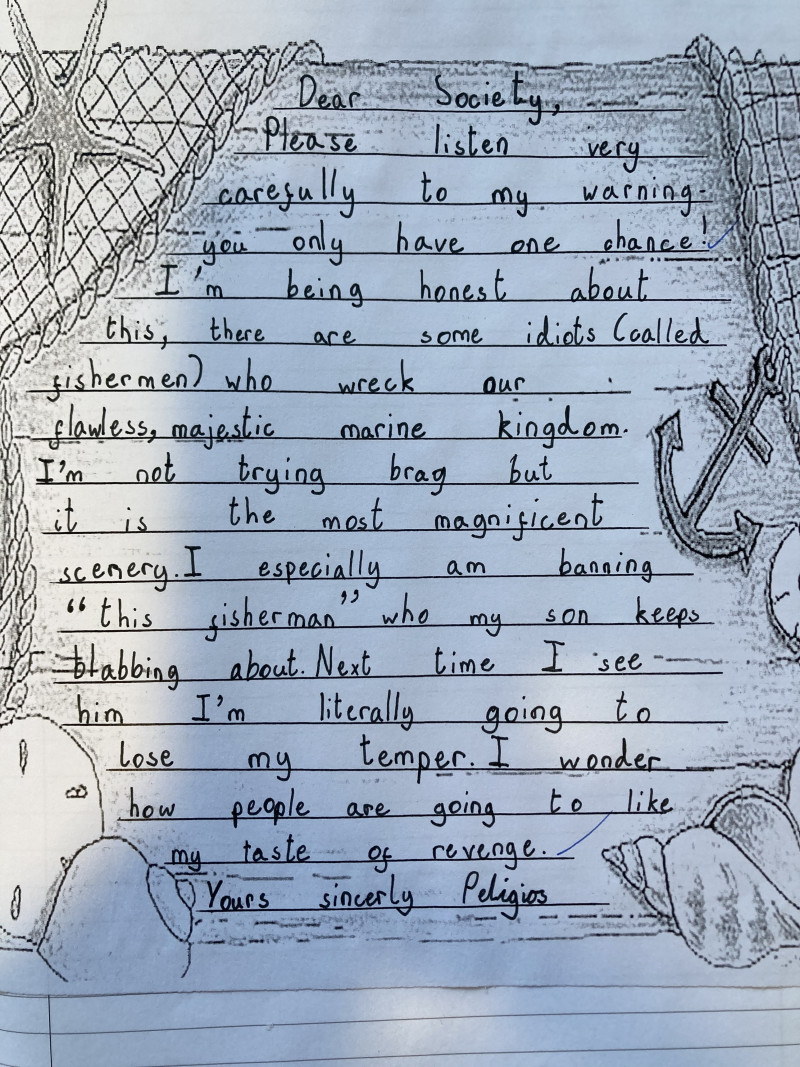 Dear Society,
Please listen very
carefully to my warning-
you only have one chance!
I'm being honest about
this, there are some idiots (called
fishermen) who wreck our
flawless, majestic marine kingdom.
I'm not trying brag but
it is the most magnificent
scenery. I especially am banning
"this fisherman" who my son keeps
blabbing about. Next time I see
him I'm literally going to
lose my temper. I wonder
how people are going to like
my taste of revenge.
Yours sincerly Peligios